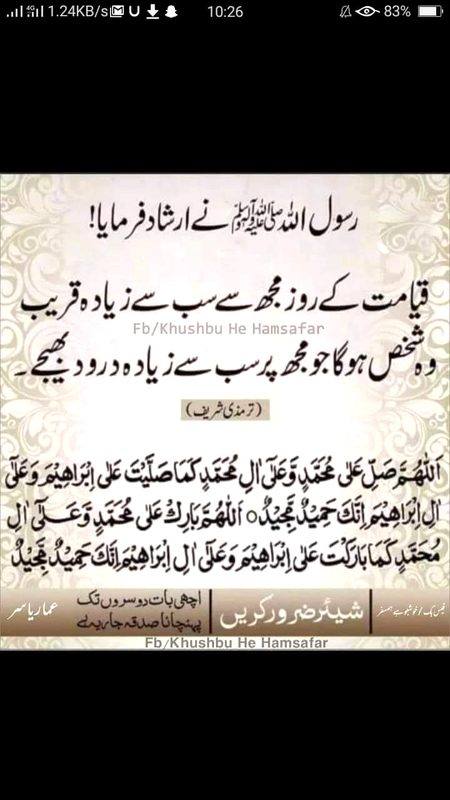 1.24KB/s 10:26 83%
رسول اللہ ﷺ نے ارشاد فرمایا!
قیامت کے روز مجھ سے سب سے زیادہ قریب
Fb/Khushbu He Hamsafar
وہ شخص ہوگا جو مجھ پر سب سے زیادہ درود بھیجے۔
(ترمذی شریف)
اَللّٰهُمَّ صَلِّ عَلٰى مُحَمَّدٍ وَّعَلٰٓى اٰلِ مُحَمَّدٍ كَمَا صَلَّيْتَ عَلٰٓى اِبْرَاهِيْمَ وَعَلٰٓى
اٰلِ اِبْرَاهِيْمَ اِنَّكَ حَمِيْدٌ مَّجِيْدٌ ○ اَللّٰهُمَّ بَارِكْ عَلٰى مُحَمَّدٍ وَّعَلٰٓى اٰلِ
مُحَمَّدٍ كَمَا بَارَكْتَ عَلٰٓى اِبْرَاهِيْمَ وَعَلٰٓى اٰلِ اِبْرَاهِيْمَ اِنَّكَ حَمِيْدٌ مَّجِيْدٌ
فیس بک/خوشبو ہے ہمسفر
شیئر ضرور کریں
اچھی بات دوسروں تک
پہنچانا صدقہ جاریہ ہے
عمار یاسر
Fb/Khushbu He Hamsafar